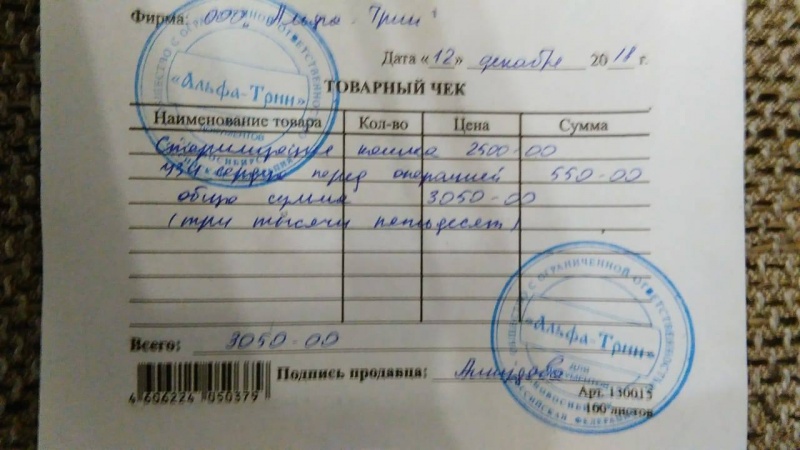 Фирма: ООО "Альфа-Трин"
Дата «12» декабря 2018 г.
ТОВАРНЫЙ ЧЕК
Наименование товара Кол-во Цена Сумма
Стерилизация кошка 2500-00
УЗИ сердца перед операцией 550-00
общая сумма 3050-00
(три тысячи пятьдесят)
Всего: 3050-00
Подпись продавца:
4 606224 050379
Арт. 130015
100 листов
«Альфа-Трин»
ОБЩЕСТВО С ОГРАНИЧЕННОЙ ОТВЕТСТВЕННОСТЬЮ
«Альфа-Трин»
ДЛЯ ДОКУМЕНТОВ
НОВОСИБИРСК
РОССИЙСКАЯ ФЕДЕРАЦИЯ